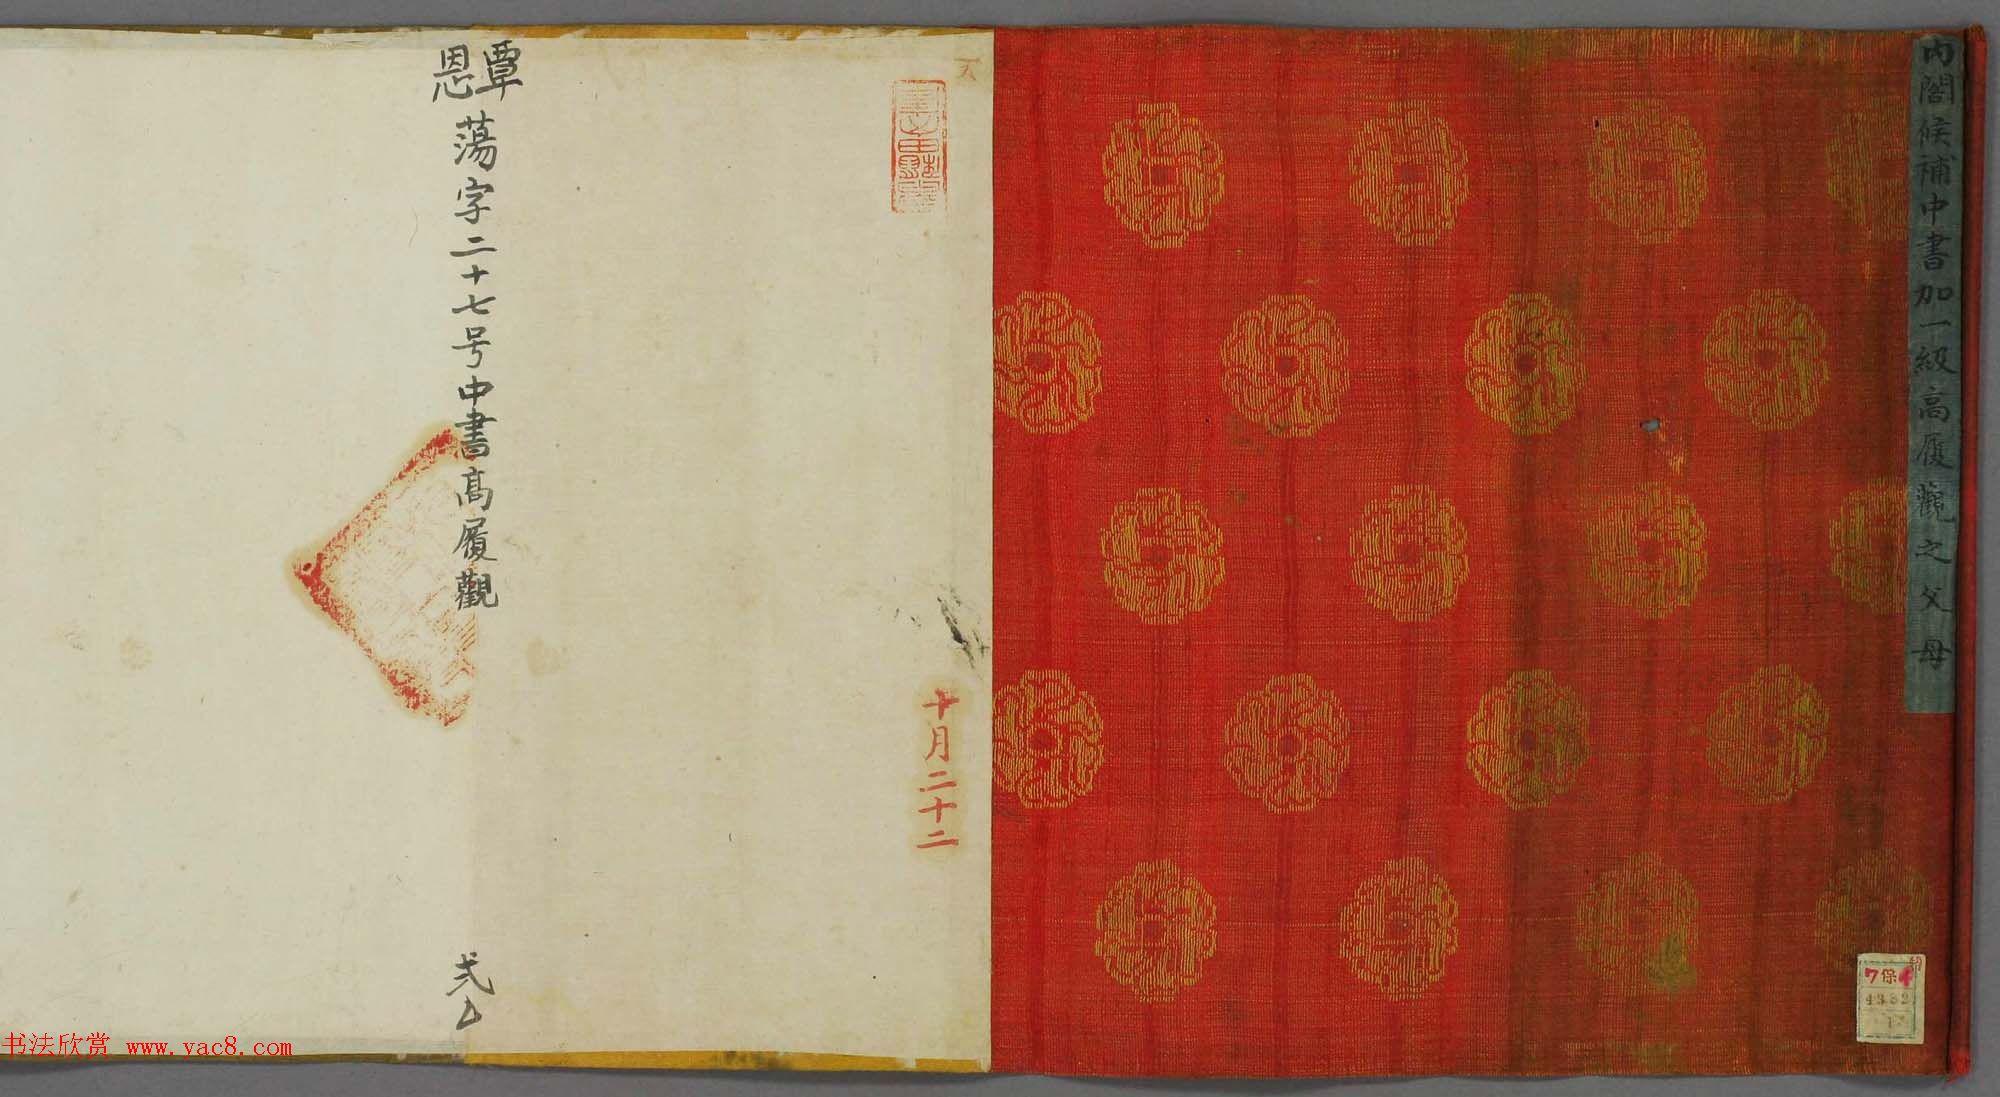 內閣候補中書加一級高履觀之父母
十月二十二
覃
恩
蕩字二十七号中書高履觀
弍
7保4
4382
书法欣赏 www.yac8.com